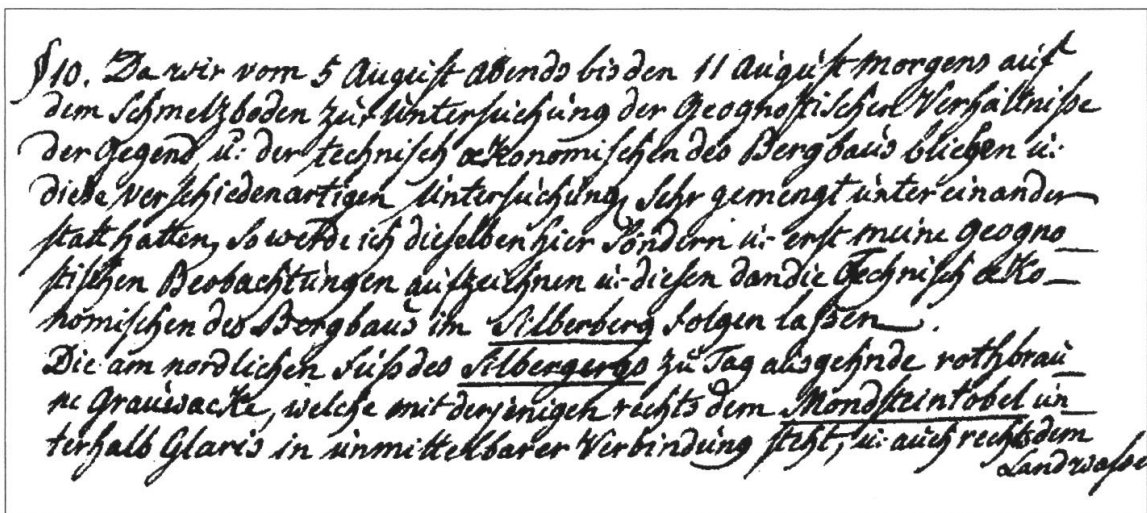 § 10. Da wir vom 5 August Abends bis den 11 August Morgens auf
dem Schmelzboden zur Untersuchung der Geognostischen Verhältniße
der Gegend u: der technisch œkonomischen des Bergbaus blieben u:
diese verschiedenartigen Untersuchung, sehr gemengt unter einander
statt hatten, so werde ich dieselben hier Söndern u: erst meine geogno—
stischen Beobachtungen aufzeichnen u: diesen dan die Technisch œko—
nomischen des Bergbaus im Silberberg folgen laßen.
Die am nordlichen Fuß des Silbergergs zu Tag ausgehnde rothbrau—
ne Grauwacke, welche mit derjenigen rechts dem Mondsteintobel un—
terhalb Glaris in unmittelbarer Verbindung steht, u: auch rechts dem
Landwasse